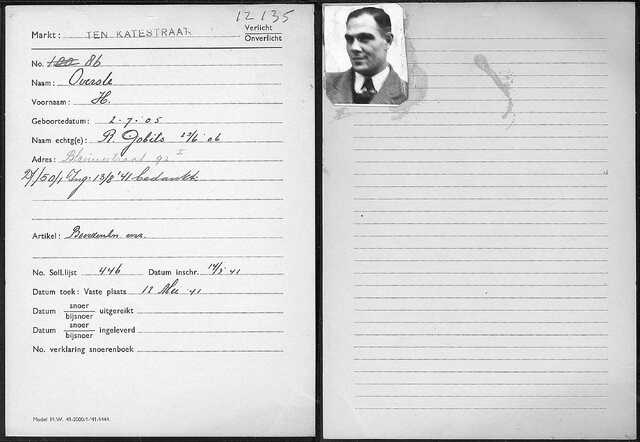 12135
Markt: TEN KATESTRAAT
Verlicht
Onverlicht
No. 100 86
Naam: Overste
Voornaam: H.
Geboortedatum: 2-7-05
Naam echtg(e): R. Gobits 22/6 06
Adres:
Ing. 13/8 '41 bedankt
Artikel:
No. Soll.lijst 446 Datum inschr. 14/3 41
Datum toek: Vaste plaats 12 Mei 41
Datum snoer bijsnoer uitgereikt
Datum snoer bijsnoer ingeleverd
No. verklaring snoerenboek
Model M.W. 43-2000/1-'41-4444.